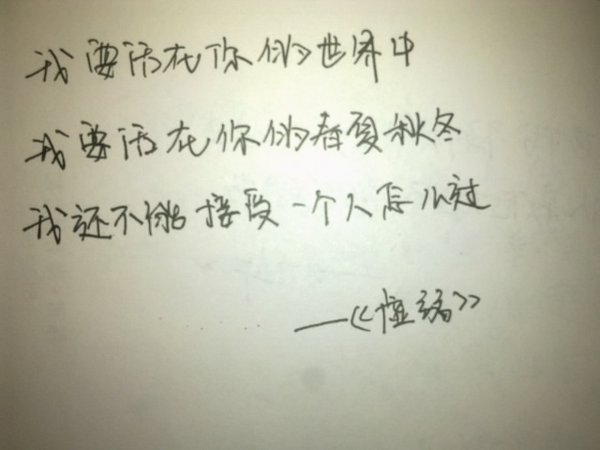 我要活在你的世界中
我要活在你的春夏秋冬
我还不能接受一个人怎么过